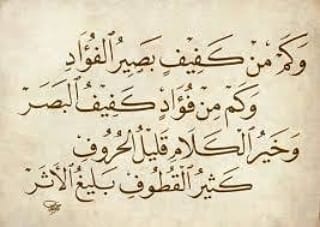 وَكَمْ مِنْ كَفِيْفٍ بَصِيْرُ الفُؤَادِ
وَكَمْ مِنْ فُؤَادٍ كَفِيْفُ البَصَرْ
وَخَيْرُ الكَلَامِ قَلِيْلُ الحُرُوْفِ
كَثِيْرُ القُطُوْفِ بَلِيْغُ الأَثَرْ